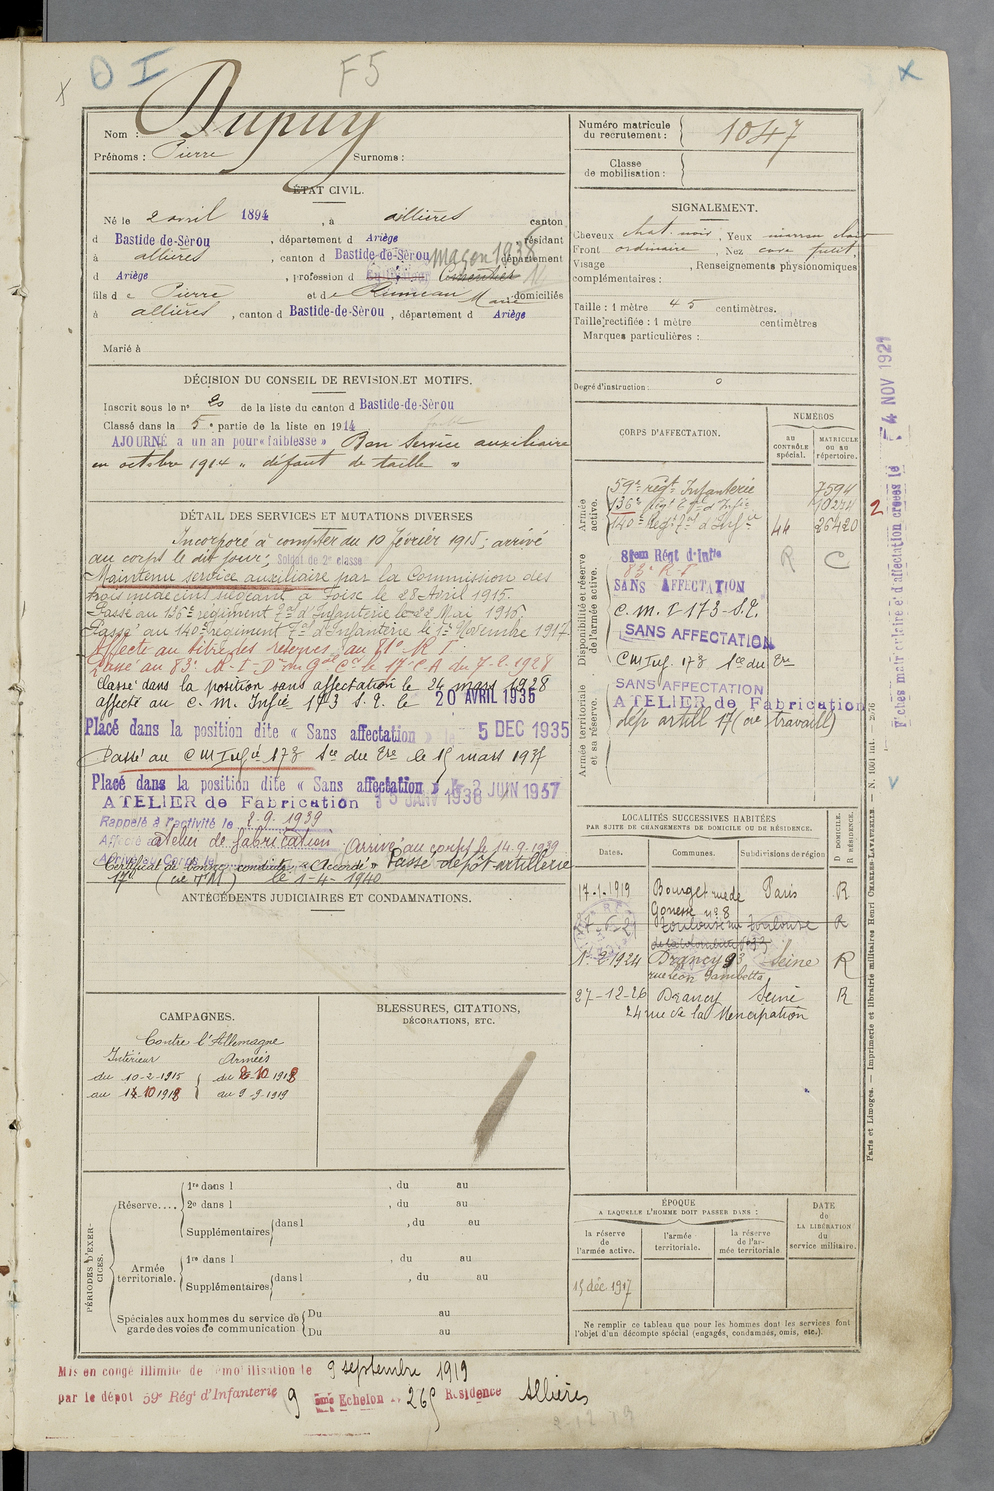 O I
F5
x
x
Nom : Dupuy
Prénoms : Pierre Surnoms :
Numéro matricule du recrutement : 1047
Classe de mobilisation :
ÉTAT CIVIL.
Né le 2 avril 1894, à allières canton
d Bastide-de-Sérou, département d Ariège, résidant
à allières, canton d Bastide-de-Sérou, département
maçon 1938
d Ariège, profession d
fils de Pierre et de Rumeau Marie domiciliés
à allières, canton d Bastide-de-Sérou, département d Ariège
Marié à
SIGNALEMENT.
Cheveux chat. noir, Yeux marron clair
Front ordinaire, Nez cave petit.
Visage , Renseignements physionomiques
complémentaires :
Taille : 1 mètre 45 centimètres.
Taille rectifiée : 1 mètre centimètres
Marques particulières :
Degré d'instruction : 0
DÉCISION DU CONSEIL DE REVISION ET MOTIFS.
Inscrit sous le n° 20 de la liste du canton d Bastide-de-Sérou
Classé dans la 5e partie de la liste en 1914
AJOURNÉ à un an pour « faiblesse » Bon Service auxiliaire
en octobre 1914 « défaut de taille »
DÉTAIL DES SERVICES ET MUTATIONS DIVERSES
Incorporé à compter du 10 février 1915; arrivé
au corps le dit jour; Soldat de 2e classe
Maintenu service auxiliaire par la Commission des
trois médecins siégeant à Foix le 28 Avril 1915.
Passé au 136e régiment d'Infanterie le 22 Mai 1916.
Passé au 140e régiment d'Infanterie le 1er Novembre 1917.
Affecté au titre des réserves au 81e R I
Passé au 83e R-I-D
Classé dans la position sans affectation le 24 mars 1928
affecté au C. M. Infie 173 S. R. le 20 AVRIL 1935
Placé dans la position dite « Sans affectation » le 5 DEC 1935
Passé au C M Infie 173 Sce du Rre le 15 mars 1937
Placé dans la position dite « Sans affectation » le 2 JUIN 1937
ATELIER de Fabrication 15 JANV 1938
Rappelé à l'activité le 2-9-1939
Atelier de fabrication Arrivé au corps le 14.9.1939
Certificat de bonne conduite « Accordé » Passé dépôt artillerie
17 le 1-4-1940
ANTÉCÉDENTS JUDICIAIRES ET CONDAMNATIONS.
CORPS D'AFFECTATION.
NUMÉROS
AU CONTRÔLE spécial.
MATRICULE ou au répertoire.
Armée active.
59e régt Infanterie 7594
136e Régt d'Infie 10274
140e Régt d'Infie 44 26420
Disponibilité et réserve de l'armée active.
81em Régt d'Infie R C
83e R I
SANS AFFECTATION
C. M. I-173-S.R.
SANS AFFECTATION
CM Inf. 173 Sce du Rre
Armée territoriale et sa réserve.
SANS AFFECTATION
ATELIER de Fabrication
dép artill 17 (cie travaill)
2
Fiches matriculaire et d'affectation créées le 4 NOV 1921
LOCALITÉS SUCCESSIVES HABITÉES
PAR SUITE DE CHANGEMENTS DE DOMICILE OU DE RÉSIDENCE.
Dates. Communes. Subdivisions de région D DOMICILE. R RÉSIDENCE.
17-1-1919 Bourget rue de Gonesse n° 8 Paris R
Toulouse Toulouse R
1-2-1924 Drancy 93 rue Léon Gambetta Seine R
27-12-26 Drancy Seine R
24 rue de la
CAMPAGNES.
Contre l'Allemagne
Intérieur Armées
du 10-2-1915 du 10 1918
au 10 1918 au 9-9-1919
BLESSURES, CITATIONS,
DÉCORATIONS, ETC.
PÉRIODES D'EXERCICES.
Réserve....
1re dans l , du au
2e dans l , du au
Supplémentaires dans l , du au
Armée territoriale.
1re dans l , du au
Supplémentaires dans l , du au
Spéciales aux hommes du service de garde des voies de communication
Du au
Du au
ÉPOQUE
A LAQUELLE L'HOMME DOIT PASSER DANS :
la réserve de l'armée active.
l'armée territoriale.
la réserve de l'armée territoriale.
DATE de LA LIBÉRATION du service militaire.
15 déc 1917
Ne remplir ce tableau que pour les hommes dont les services font
l'objet d'un décompte spécial (engagés, condamnés, omis, etc.).
Paris et Limoges. — Imprimerie et librairie militaires Henri CHARLES-LAVAUZELLE. — N. 1001 int.
Mis en congé illimité de démobilisation le 9 septembre 1919
par le dépôt 59e Régt d'Infanterie 9 ème Echelon n° 265 Résidence Allières